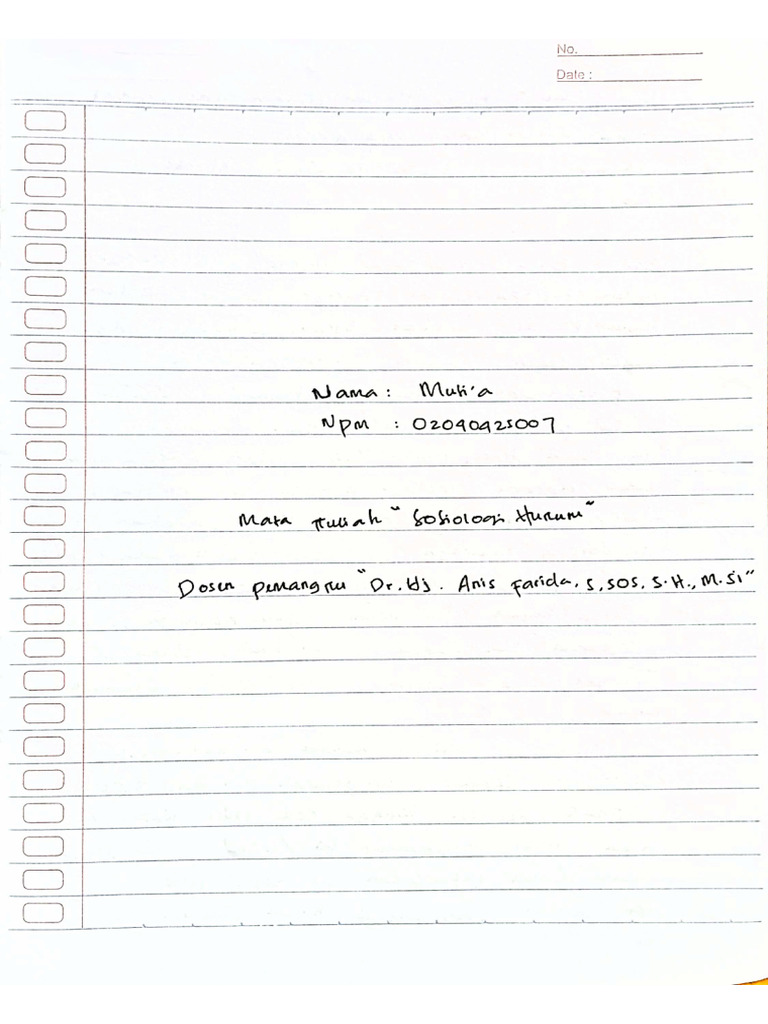 No.
Date :
Nama : Muti'a
Npm : 02040425007
Mata Kuliah "Sosiologi Hukum"
Dosen Pemangku "Dr. Hj. Anis Farida, S,SOS, S.H., M.Si"